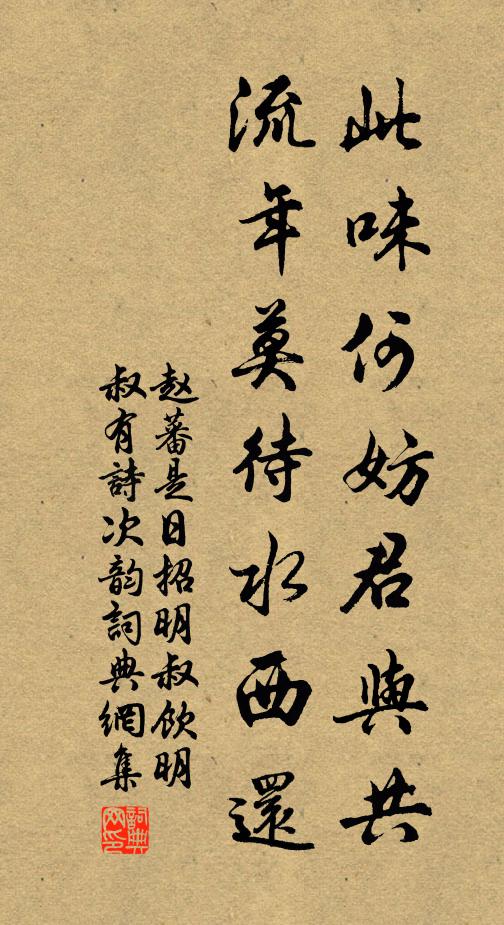 此味何妨君與共
流年莫待水西還
赵蕃是日招明叔飲明
叔有詩次韵詞典網集
詞典网印